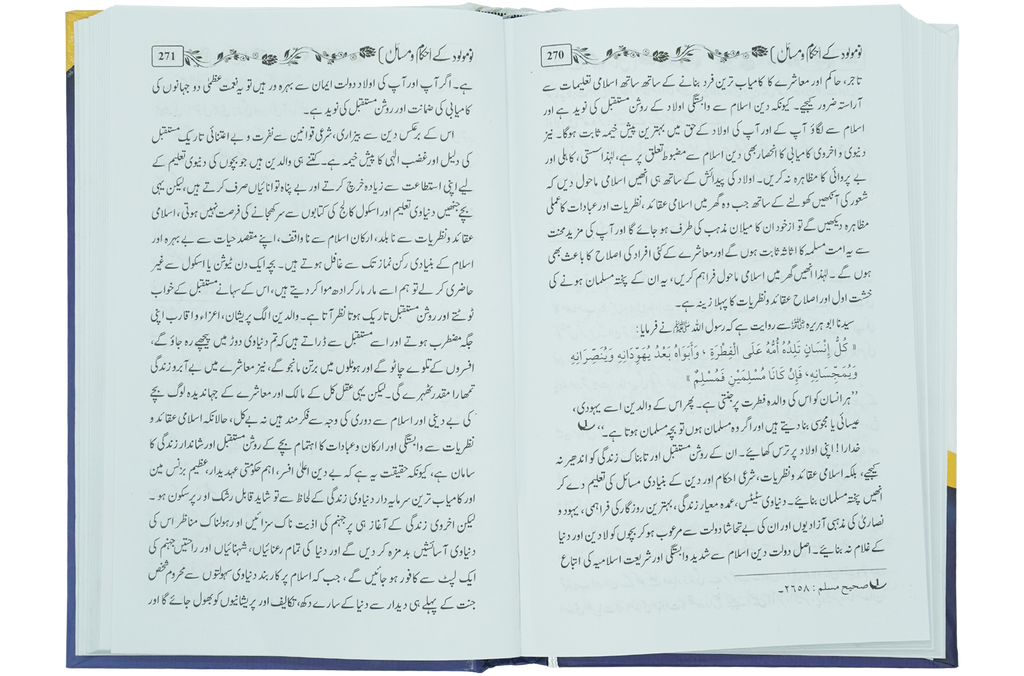 نومولود کے احکام و مسائل
270
تاجر، حاکم اور معاشرے کا کامیاب ترین فرد بنانے کے ساتھ ساتھ اسلامی تعلیمات سے
آراستہ ضرور کیجیے۔ کیونکہ دین اسلام سے وابستگی اولاد کے روشن مستقبل کی نوید ہے اور
اسلام سے لگاؤ آپ کے اور آپ کی اولاد کے حق میں بہترین پیش خیمہ ثابت ہوگا۔ نیز
دنیوی و اخروی کامیابی کا انحصار بھی دین اسلام سے مضبوط تعلق پر ہے، لہٰذا سستی، کاہلی اور
بے پروائی کا مظاہرہ نہ کریں۔ اولاد کی پیدائش کے ساتھ ہی انھیں اسلامی ماحول دیں کہ
شعور کی آنکھیں کھولنے کے ساتھ جب وہ گھر میں اسلامی عقائد، نظریات اور عبادات کا عملی
مظاہرہ دیکھیں گے تو از خود ان کا میلان مذہب کی طرف ہو جائے گا اور آپ کی مزید محنت
سے یہ امت مسلمہ کا اثاثہ ثابت ہوں گے اور معاشرے کے کئی افراد کی اصلاح کا باعث بھی
ہوں گے۔ لہٰذا انھیں گھر میں اسلامی ماحول فراہم کریں، یہ ان کے پختہ مسلمان ہونے کی
خشت اول اور اصلاح عقائد و نظریات کا پہلا زینہ ہے۔
سیدنا ابو ہریرہ رضی اللہ عنہ سے روایت ہے کہ رسول اللہ ﷺ نے فرمایا:
« كُلُّ إِنْسَانٍ تَلِدُهُ أُمُّهُ عَلَى الْفِطْرَةِ ، وَأَبَوَاهُ بَعْدُ يُهَوِّدَانِهِ وَيُنَصِّرَانِهِ
وَيُمَجِّسَانِهِ، فَإِنْ كَانَا مُسْلِمَيْنِ فَمُسْلِمٌ »
”ہر انسان کو اس کی والدہ فطرت پر جنتی ہے۔ پھر اس کے والدین اسے یہودی،
عیسائی یا مجوسی بنا دیتے ہیں اور اگر وہ مسلمان ہوں تو بچہ مسلمان ہوتا ہے۔“ ①
خدارا!! اپنی اولاد پر ترس کھائیے۔ ان کے روشن مستقبل اور تابناک زندگی کو اندھیر نہ
کیجیے، بلکہ اسلامی عقائد و نظریات، شرعی احکام اور دین کے بنیادی مسائل کی تعلیم دے کر
انھیں پختہ مسلمان بنائیے۔ دنیاوی سٹیٹس، عمدہ معیار زندگی، بہترین روزگار کی فراہمی، یہود و
نصاریٰ کی مذہبی آزادیوں اور ان کی بے تحاشا دولت سے مرعوب ہو کر بچوں کو لا دین اور دنیا
کے غلام نہ بنائیے۔ اصل دولت دین اسلام سے شدید وابستگی اور شریعت اسلامیہ کی اتباع
① صحیح مسلم : ٢٦٥٨۔
نومولود کے احکام و مسائل
271
ہے۔ اگر آپ اور آپ کی اولاد دولت ایمان سے بہرہ ور ہیں تو یہ نعمت عظمیٰ دو جہانوں کی
کامیابی کی ضمانت اور روشن مستقبل کی نوید ہے۔
اس کے برعکس دین سے بیزاری، شرعی قوانین سے نفرت و بے اعتنائی تاریک مستقبل
کی دلیل اور غضب الٰہی کا پیش خیمہ ہے۔ کتنے ہی والدین ہیں جو بچوں کی دنیوی تعلیم کے
لیے اپنی استطاعت سے زیادہ خرچ کرتے اور بے پناہ توانائیاں صرف کرتے ہیں، لیکن یہی
بچے جنھیں دنیاوی تعلیم اور اسکول کالج کی کتابوں سے سر کھجانے کی فرصت نہیں ہوتی، اسلامی
عقائد و نظریات سے نابلد، ارکان اسلام سے ناواقف، اپنے مقصد حیات سے بے بہرہ اور
اسلام کے بنیادی رکن نماز تک سے غافل ہوتے ہیں۔ بچہ ایک دن ٹیوشن یا اسکول سے غیر
حاضری کر لے تو ہم اسے مار مار کر ادھ موا کر دیتے ہیں، اس کے سہانے مستقبل کے خواب
ٹوٹتے اور روشن مستقبل تاریک ہوتا نظر آتا ہے۔ والدین الگ پریشان، اعزاء و اقارب اپنی
جگہ مضطرب ہوتے اور اسے مستقبل سے ڈراتے ہیں کہ تم دنیاوی دوڑ میں پیچھے رہ جاؤ گے،
افسروں کے تلوے چاٹو گے اور ہوٹلوں میں برتن مانجو گے، نیز معاشرے میں بے آبرو زندگی
تمھارا مقدر ٹھہرے گی۔ لیکن یہی عقل کل کے مالک اور معاشرے کے جہاندیدہ لوگ بچے
کی بے دینی اور اسلام سے دوری کی وجہ سے فکر مند ہیں نہ بے کل، حالانکہ اسلامی عقائد و
نظریات سے وابستگی اور ارکان و عبادات کا اہتمام بچے کے روشن مستقبل اور شاندار زندگی کا
سامان ہے، کیونکہ حقیقت یہ ہے کہ بے دین اعلیٰ افسر، اہم حکومتی عہدیدار، عظیم بزنس مین
اور کامیاب ترین سرمایہ دار دنیاوی زندگی کے لحاظ سے تو شاید قابل رشک اور پرسکون ہو۔
لیکن اخروی زندگی کے آغاز ہی پر جہنم کی اذیت ناک سزائیں اور ہولناک مناظر اس کی
دنیاوی آسائشیں بد مزہ کر دیں گے اور دنیا کی تمام رعنائیاں، شہنائیاں اور راحتیں جہنم کی
ایک لپٹ سے کافور ہو جائیں گے، جب کہ اسلام پر کاربند دنیاوی سہولتوں سے محروم شخص
جنت کے پہلے ہی دیدار سے دنیا کے سارے دکھ، تکالیف اور پریشانیوں کو بھول جائے گا اور